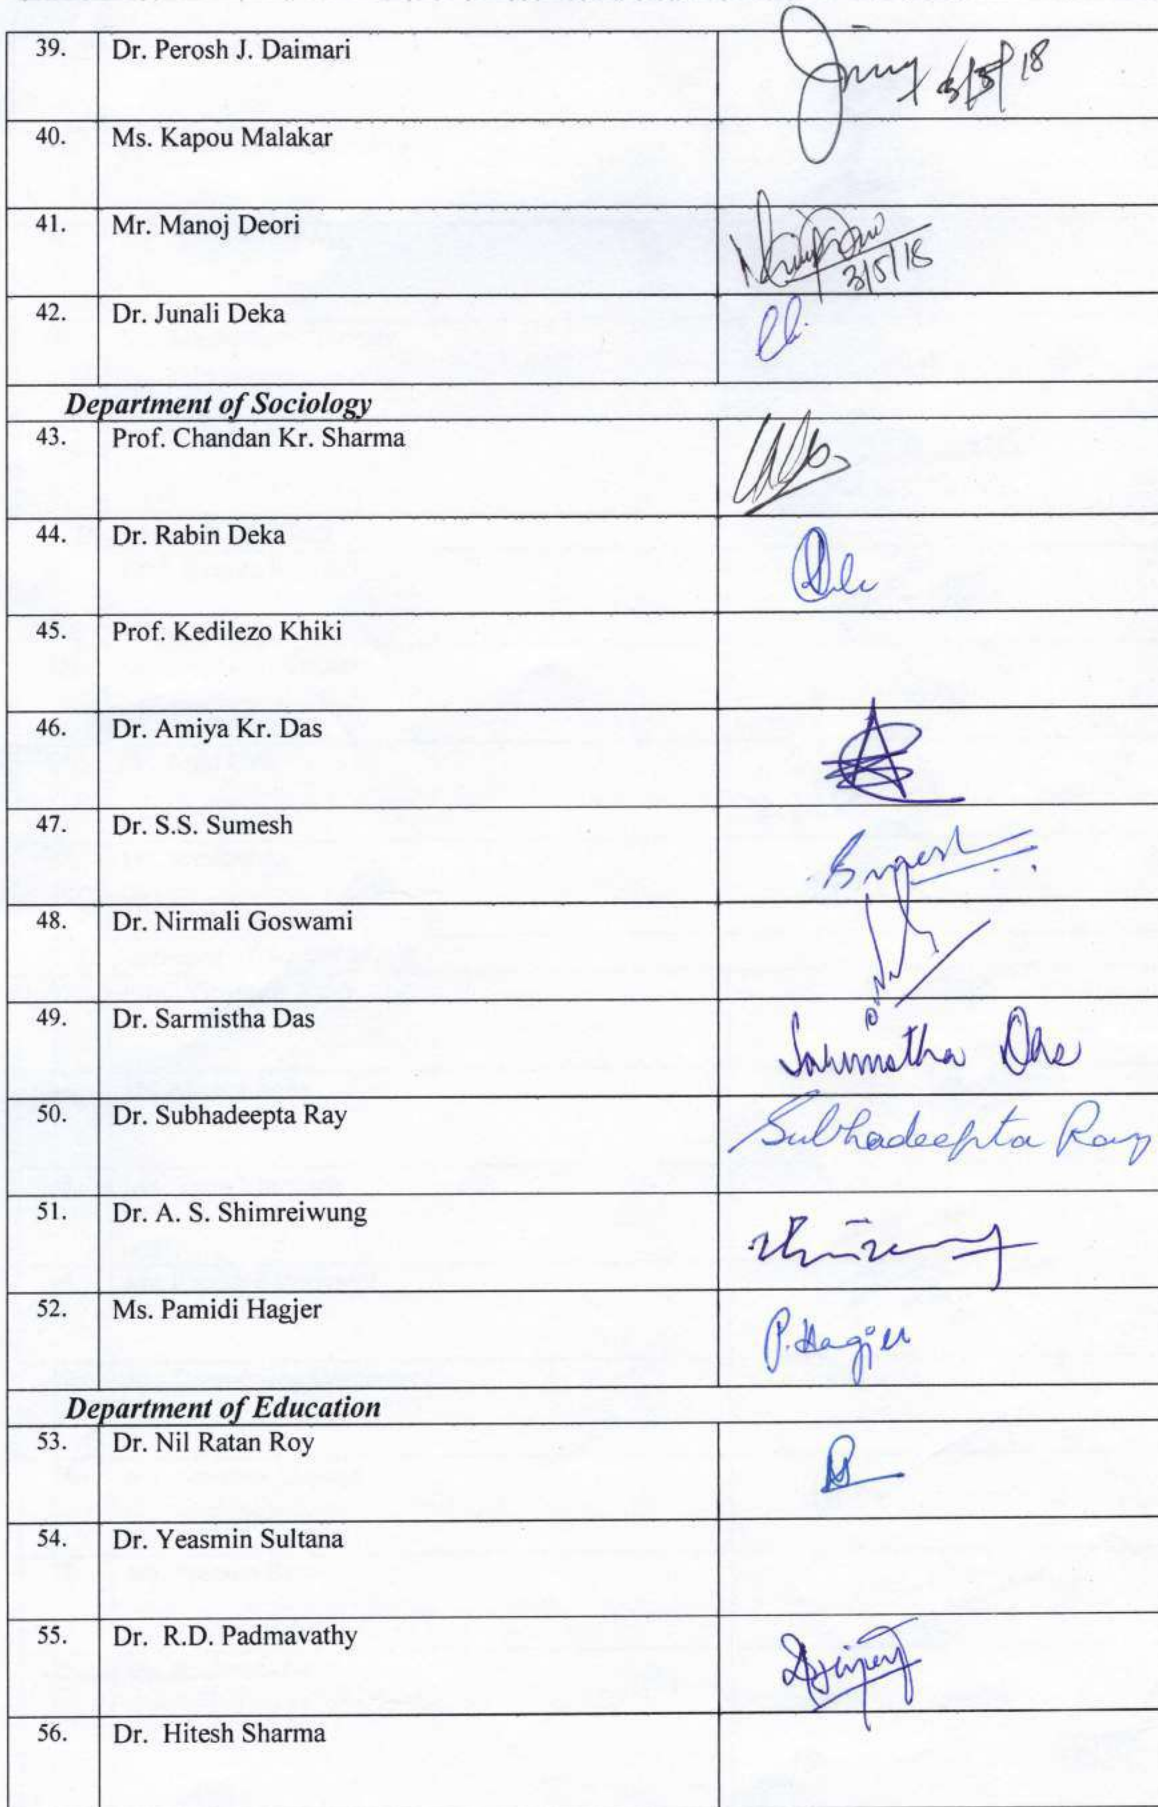 39. Dr. Perosh J. Daimari 3/5/18
40. Ms. Kapou Malakar
41. Mr. Manoj Deori 3/5/18
42. Dr. Junali Deka
Department of Sociology
43. Prof. Chandan Kr. Sharma
44. Dr. Rabin Deka
45. Prof. Kedilezo Khiki
46. Dr. Amiya Kr. Das
47. Dr. S.S. Sumesh
48. Dr. Nirmali Goswami
49. Dr. Sarmistha Das Sarmistha Das
50. Dr. Subhadeepta Ray Subhadeepta Ray
51. Dr. A. S. Shimreiwung
52. Ms. Pamidi Hagjer P. Hagjer
Department of Education
53. Dr. Nil Ratan Roy
54. Dr. Yeasmin Sultana
55. Dr. R.D. Padmavathy
56. Dr. Hitesh Sharma